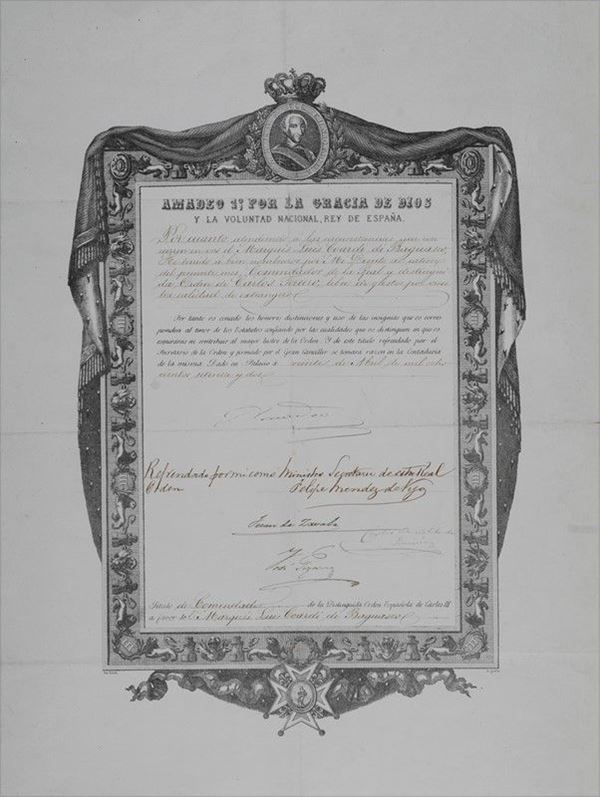 AMADEO 1º POR LA GRACIA DE DIOS
Y LA VOLUNTAD NACIONAL, REY DE ESPAÑA.
Por cuanto atendiendo a las circunstancias que con
curren en el Marques Luis Coardi de Bagnasco,
He tenido a bien nombraros por Mi Decreto de catorce
del presente mes, Comendador de la Real y distingui
da Orden de Carlos Tercero, libre de gastos por vues
tra calidad de extranjero
Por tanto os concedo los honores distinciones y uso de las insignias que os corres
ponden al tenor de los Estatutos confiando por las cualidades que os distinguen en que os
esmerareis en contribuir al mayor lustre de la Orden. Y de este titulo refrendado por el
Secretario de la Orden y firmado por el Gran Canciller se tomará razon en la Contaduria
de la misma. Dado en Palacio á veinte de Abril de mil ocho
cientos setenta y dos
Amadeo
Refrendado por mi como Ministro Secretario de esta Real
Orden Felipe Mendez de Vigo
Juan de Zavala
Titulo de Comendador de la Distinguida Orden Española de Carlos III
a favor del Marques Luis Coardi de Bagnasco